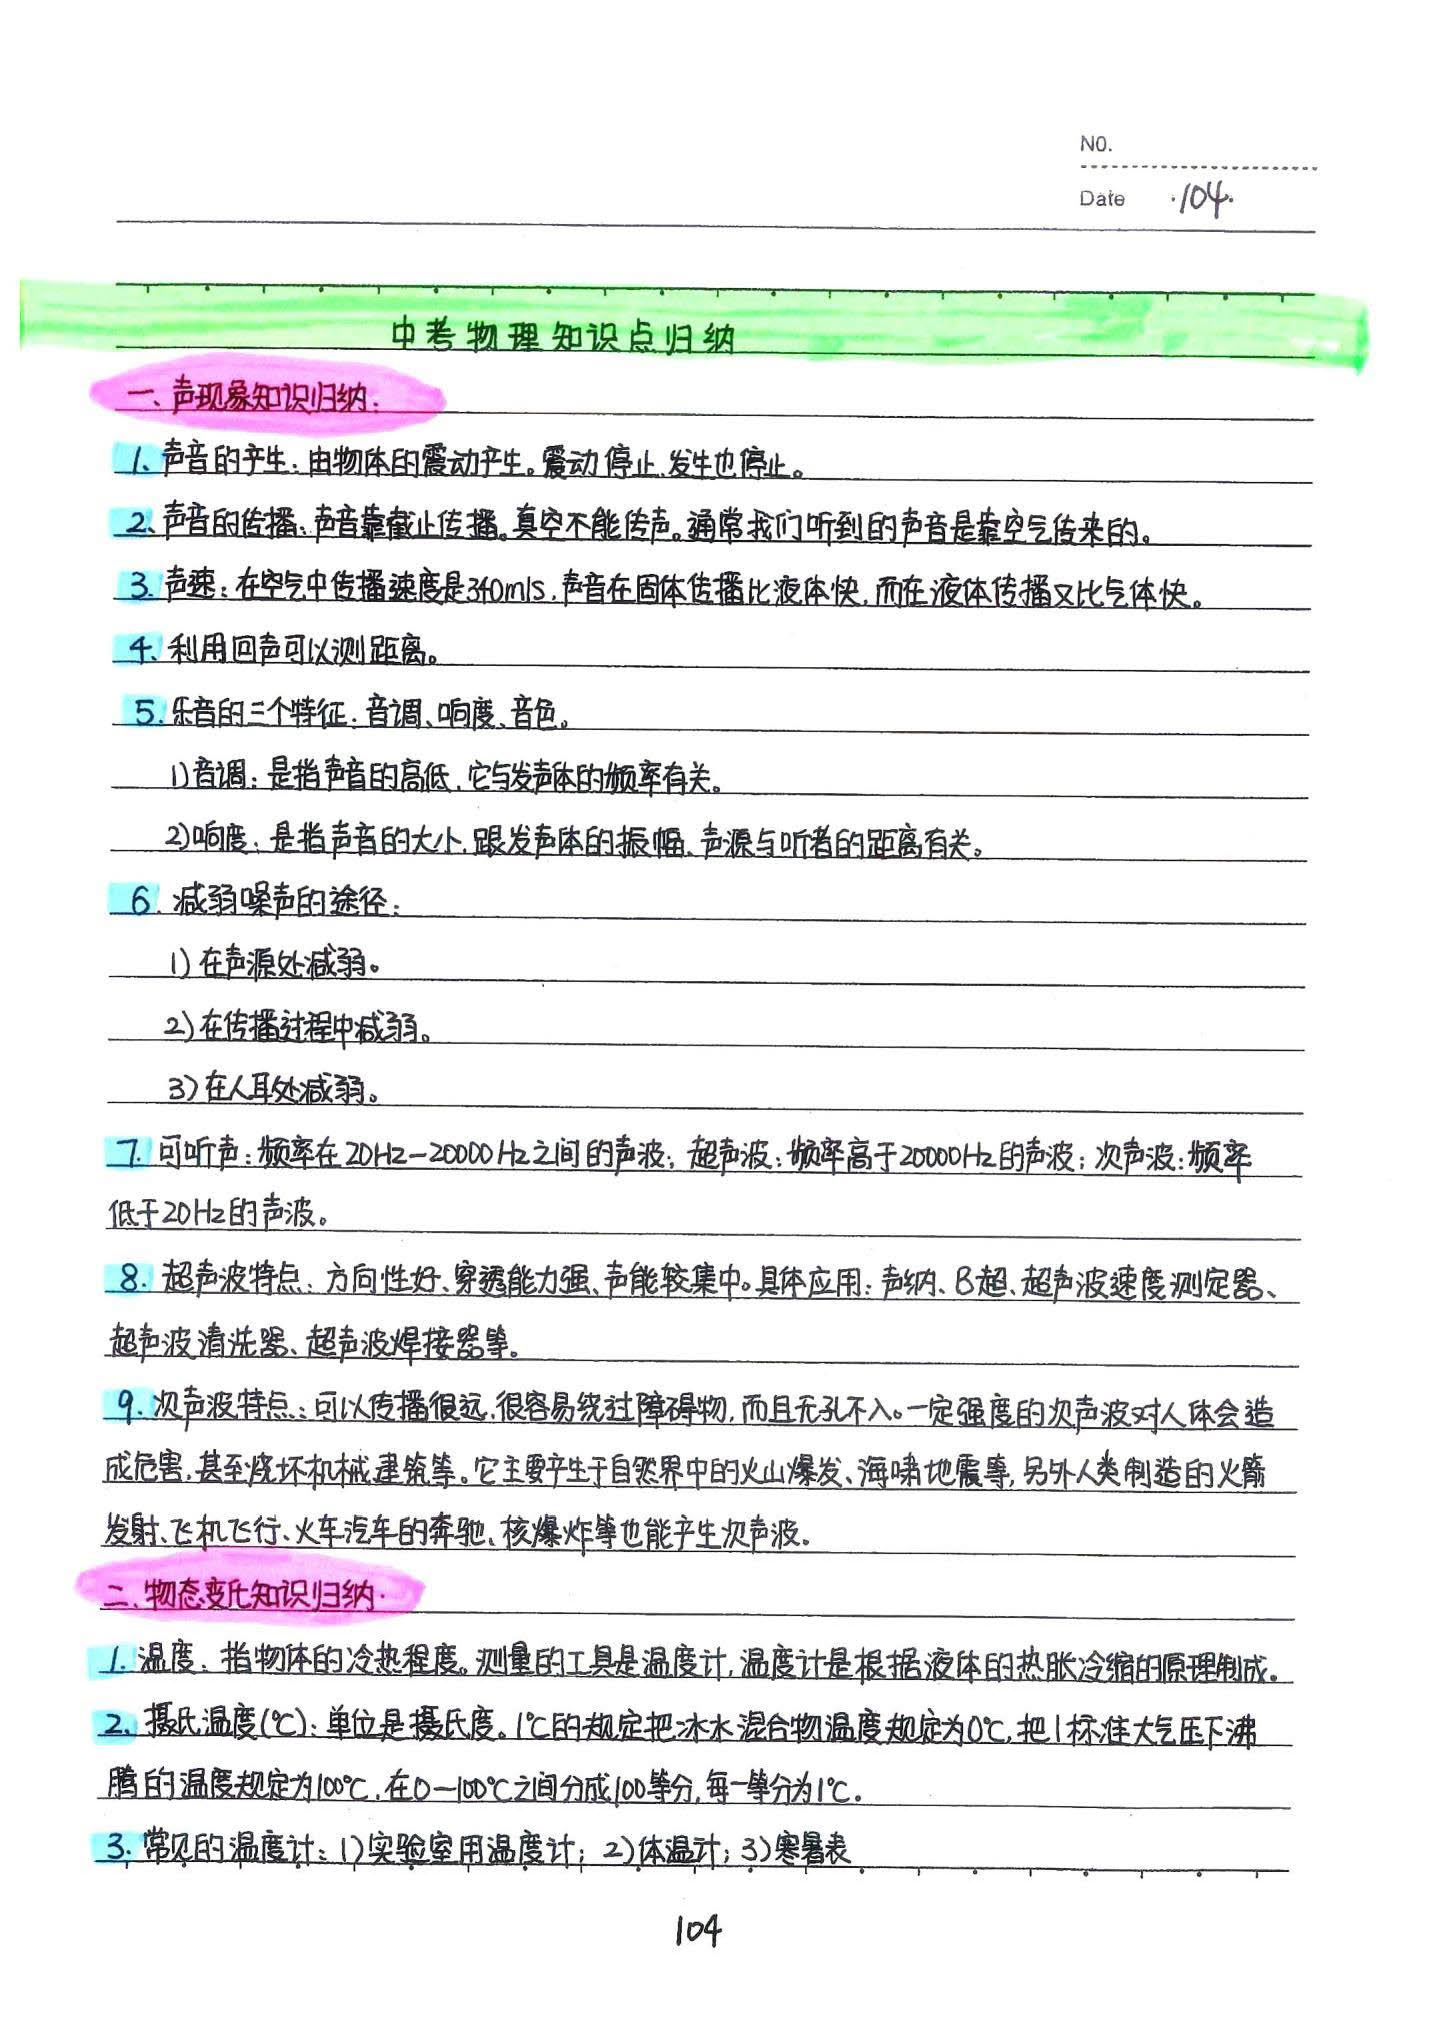 NO.
Date ·104·
中考物理知识点归纳
一、声现象知识归纳:
1、声音的产生:由物体的震动产生。震动停止,发生也停止。
2、声音的传播:声音靠截止传播。真空不能传声。通常我们听到的声音是靠空气传来的。
3、声速:在空气中传播速度是340m/s,声音在固体传播比液体快,而在液体传播又比气体快。
4、利用回声可以测距离。
5、乐音的三个特征:音调、响度、音色。
1)音调:是指声音的高低,它与发声体的频率有关。
2)响度:是指声音的大小,跟发声体的振幅、声源与听者的距离有关。
6、减弱噪声的途径:
1)在声源处减弱。
2)在传播过程中减弱。
3)在人耳处减弱。
7、可听声:频率在20Hz-20000Hz之间的声波;超声波:频率高于20000Hz的声波;次声波:频率
低于20Hz的声波。
8. 超声波特点:方向性好、穿透能力强、声能较集中。具体应用:声纳、B超、超声波速度测定器、
超声波清洗器、超声波焊接器等。
9. 次声波特点:可以传播很远,很容易绕过障碍物,而且无孔不入。一定强度的次声波对人体会造
成危害,甚至烧坏机械建筑等。它主要产生于自然界中的火山爆发、海啸地震等,另外人类制造的火箭
发射、飞机飞行、火车汽车的奔驰、核爆炸等也能产生次声波。
二、物态变化知识归纳:
1. 温度:指物体的冷热程度。测量的工具是温度计,温度计是根据液体的热胀冷缩的原理制成。
2、摄氏温度(℃):单位是摄氏度。1℃的规定把冰水混合物温度规定为0℃,把1标准大气压下沸
腾的温度规定为100℃,在0—100℃之间分成100等分,每一等分为1℃。
3. 常见的温度计:1)实验室用温度计;2)体温计;3)寒暑表
104